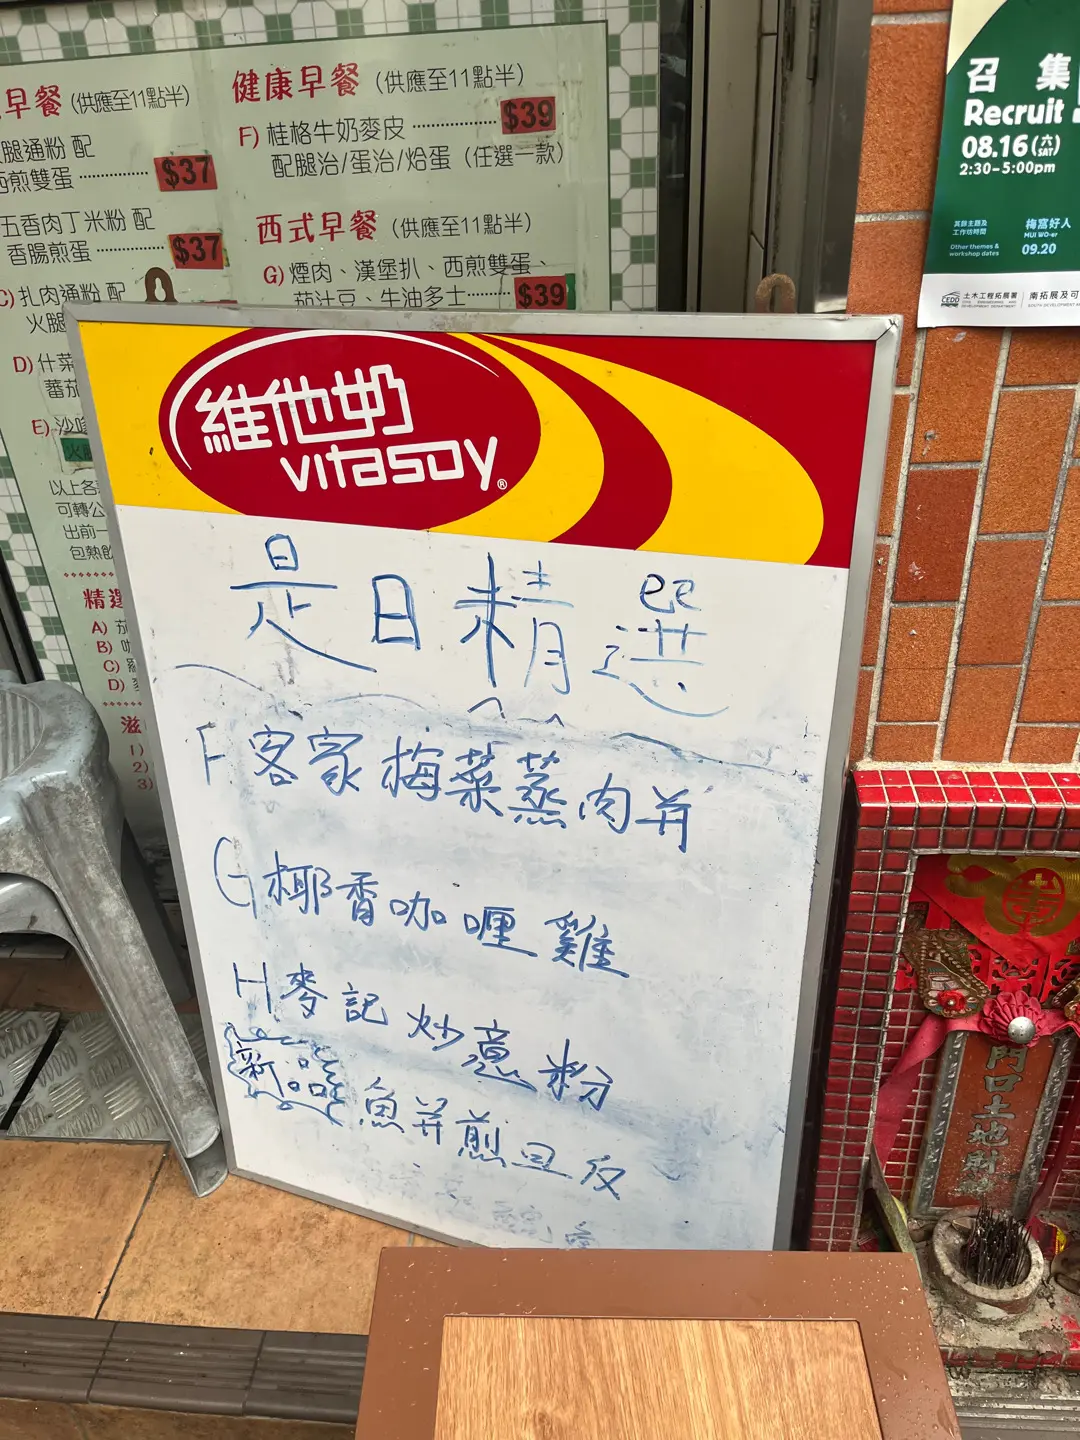 早餐 (供應至11點半)
腿通粉 配
西煎雙蛋 $37
五香肉丁米粉 配
香腸煎蛋 $37
C) 扎肉通粉 配
火腿
D) 什菜
蕃茄
E) 沙嗲
以上各
可轉公
出前一
包熱飲
精選
A) 茄
B) 咖
C)
D)
滋
1)
2)
3)
健康早餐 (供應至11點半)
F) 桂格牛奶麥皮 $39
配腿治/蛋治/烚蛋 (任選一款)
西式早餐 (供應至11點半)
G) 煙肉、漢堡扒、西煎雙蛋、
茄汁豆、牛油多士 $39
召 集
Recruit
08.16 (六 SAT)
2:30-5:00pm
其餘主題及
工作坊時間
Other themes &
workshop dates
梅窩好人
MUI WO-er
09.20
CEDD 土木工程拓展署
南拓展及可
維他奶
vitasoy®
是日精選
F 客家梅菜蒸肉并
G 椰香咖喱雞
H 麥記炒意粉
新品 魚并煎豆反
門口土地財神